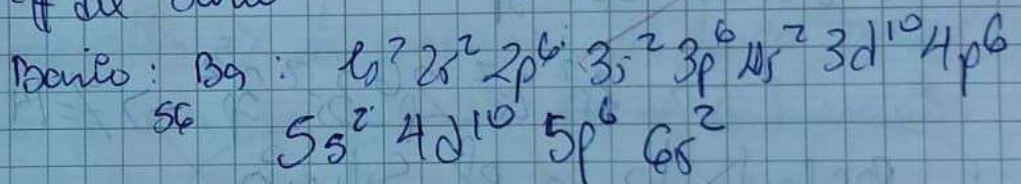 Bario: Ba: 1s² 2s² 2p⁶ 3s² 3p⁶ 4s² 3d¹⁰ 4p⁶
56 5s² 4d¹⁰ 5p⁶ 6s²